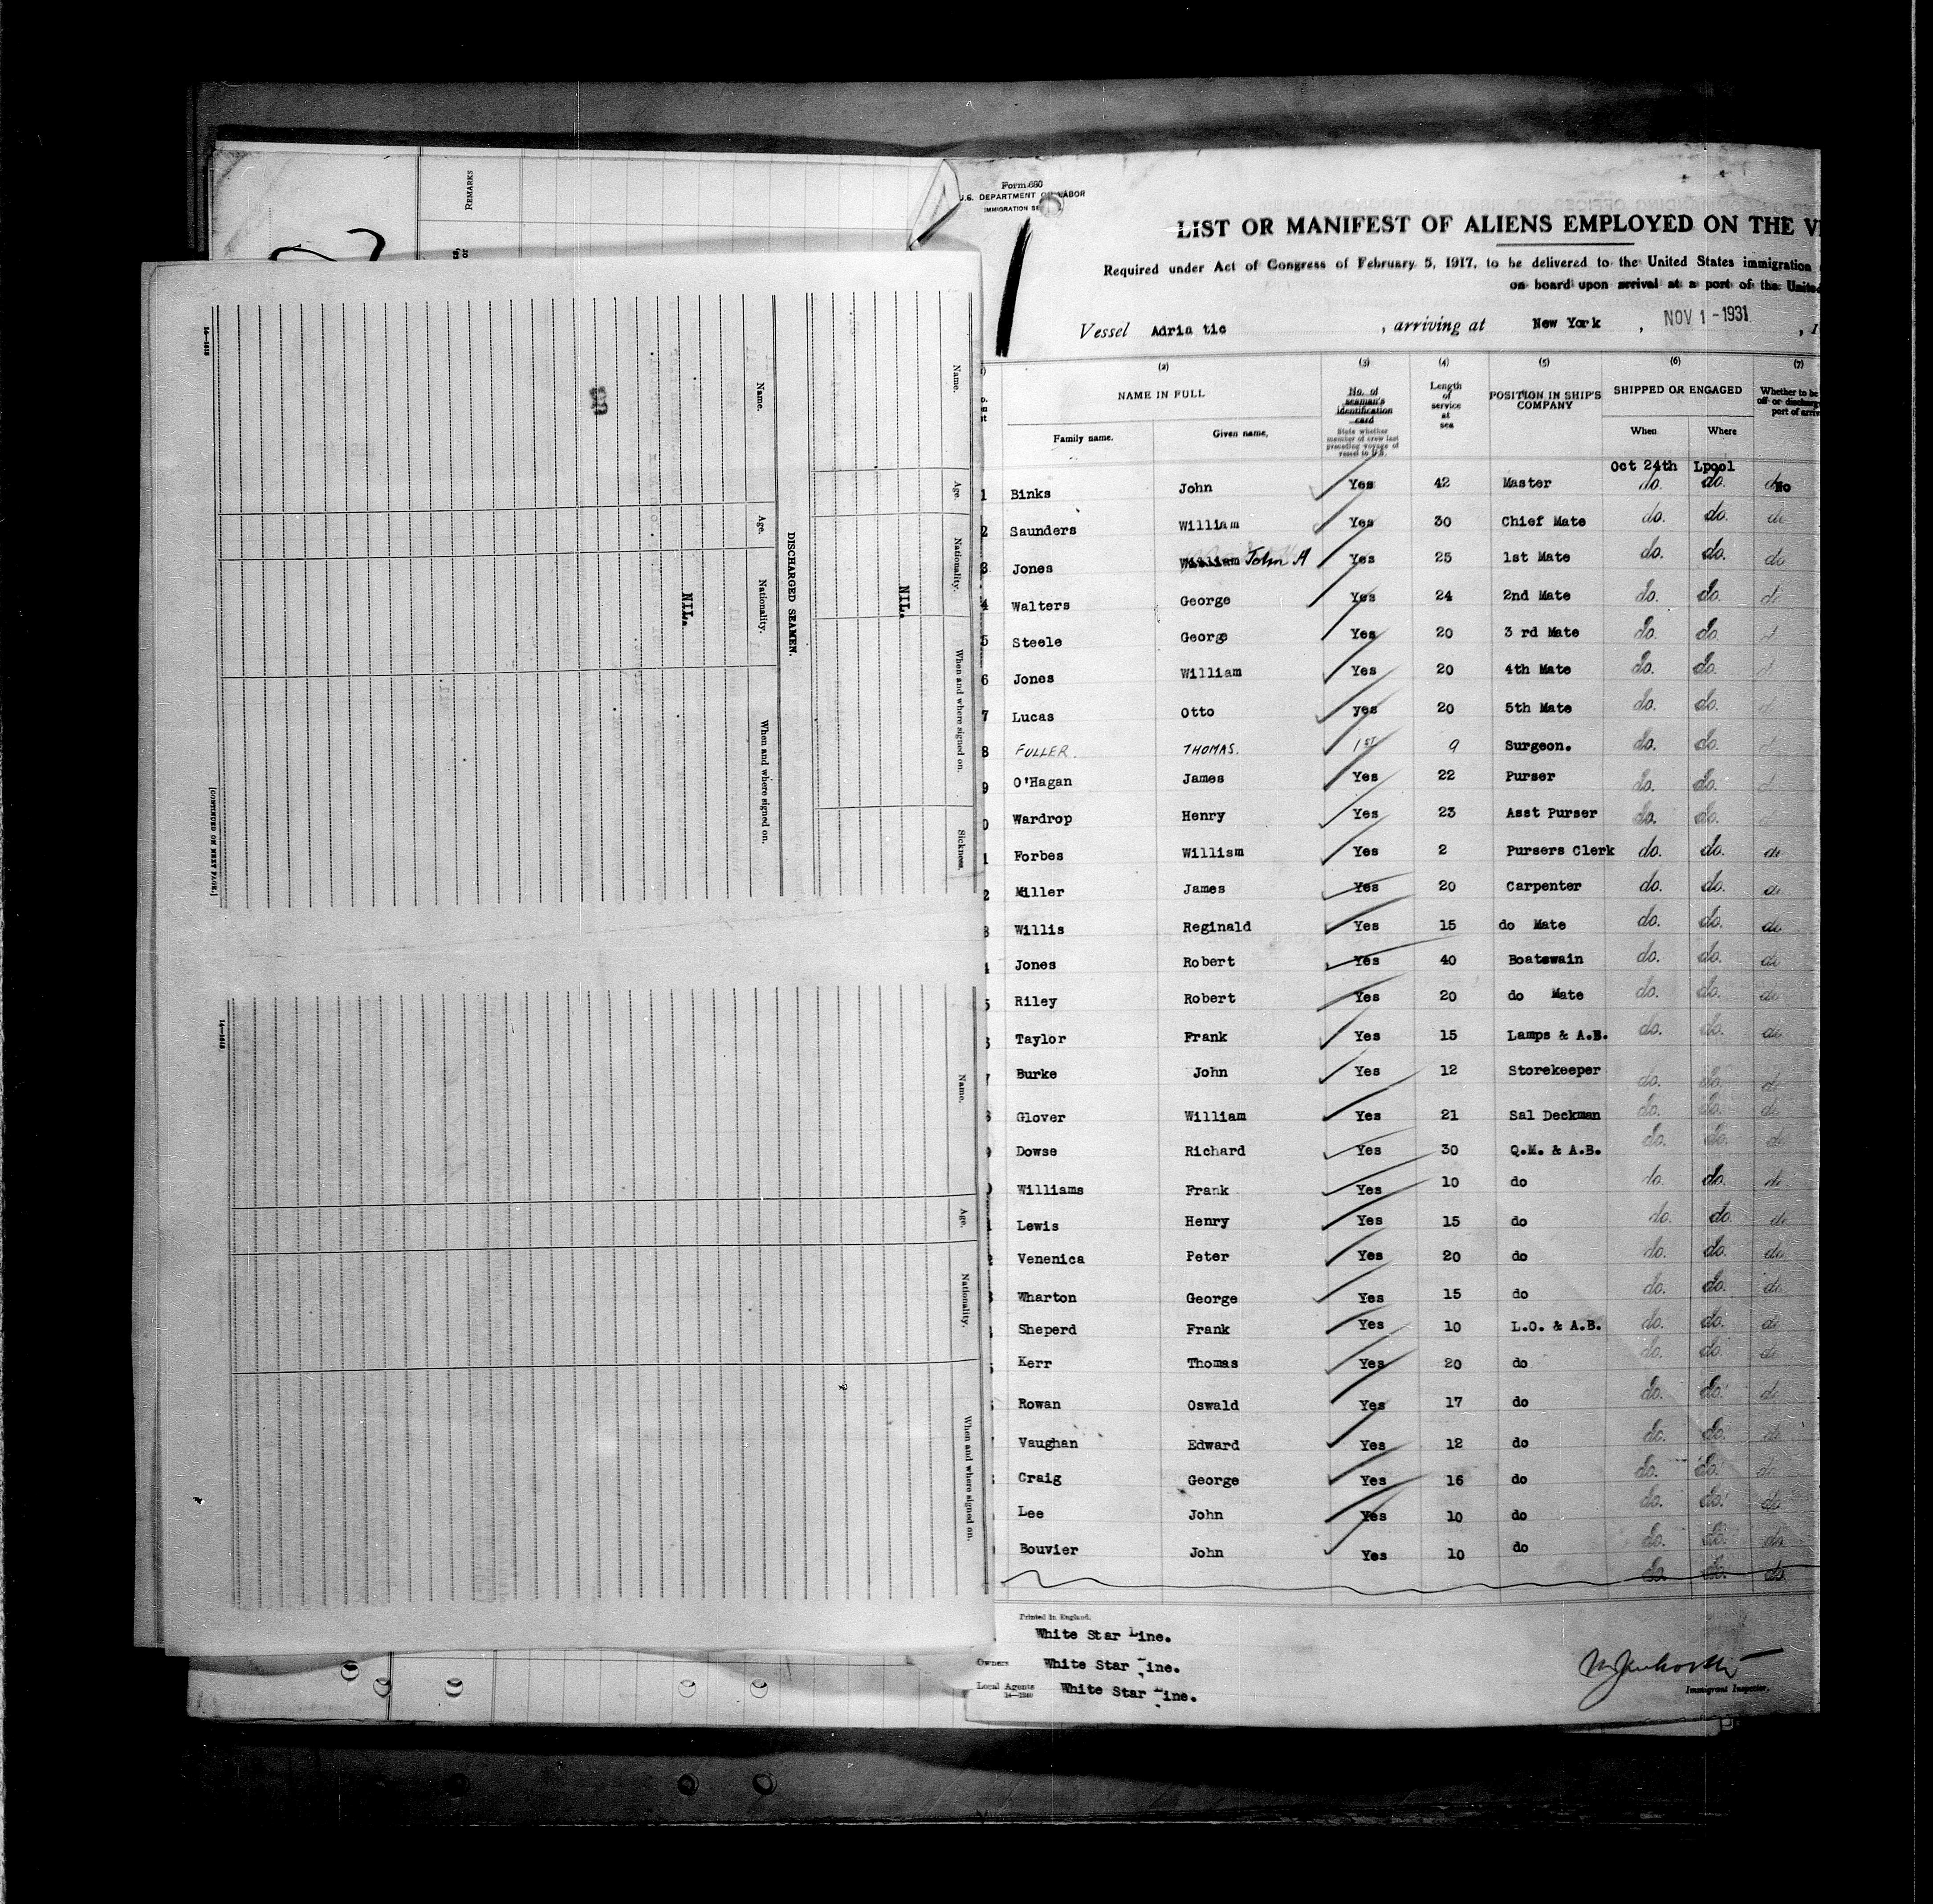 REMARKS
Name.
Age.
Nationality.
When and where signed on.
Sickness.
NIL.
DISCHARGED SEAMEN.
Name.
Age.
Nationality.
When and where signed on.
NIL.
[CONTINUED ON NEXT PAGE.]
Name.
Age.
Nationality.
When and where signed on.
Form 680
U.S. DEPARTMENT OF LABOR
IMMIGRATION SE
LIST OR MANIFEST OF ALIENS EMPLOYED ON THE V
Required under Act of Congress of February 5, 1917, to be delivered to the United States immigration
on board upon arrival at a port of the United
Vessel Adriatic, arriving at New York, NOV 1 - 1931, 1
(2) (3) (4) (5) (6) (7)
NAME IN FULL
Family name. Given name.
No. of seaman's identification card
State whether member of crew last preceding voyage of vessel to U.S.
Length of service at sea
POSITION IN SHIP'S COMPANY
SHIPPED OR ENGAGED
When Where
Whether to be
off or discharg
port of arriv
Oct 24th Lpool
1 Binks John Yes 42 Master do. do. No
2 Saunders William Yes 30 Chief Mate do. do. do
3 Jones William John A Yes 25 1st Mate do. do. do
4 Walters George Yes 24 2nd Mate do. do. d
5 Steele George Yes 20 3 rd Mate do. do. d
6 Jones William Yes 20 4th Mate do. do. d
7 Lucas Otto yes 20 5th Mate do. do. d
8 FULLER. THOMAS. 1ST 9 Surgeon. do. do. d
9 O'Hagan James Yes 22 Purser do. do. d
0 Wardrop Henry Yes 23 Asst Purser do. do. d
1 Forbes William Yes 2 Pursers Clerk do. do. do
2 Miller James Yes 20 Carpenter do. do. do
3 Willis Reginald Yes 15 do Mate do. do. do
4 Jones Robert Yes 40 Boatswain do. do. do
5 Riley Robert Yes 20 do Mate do. do. do
Taylor Frank Yes 15 Lamps & A.B. do. do. do
7 Burke John Yes 12 Storekeeper do. do. do
Glover William Yes 21 Sal Deckman do. do. do
Dowse Richard Yes 30 Q.M. & A.B. do. do. do
Williams Frank Yes 10 do do. do. do
Lewis Henry Yes 15 do do. do. do
Venenica Peter Yes 20 do do. do. do
Wharton George Yes 15 do do. do. do
Sheperd Frank Yes 10 L.O. & A.B. do. do. do
Kerr Thomas Yes 20 do do. do. do
Rowan Oswald Yes 17 do do. do. do
Vaughan Edward Yes 12 do do. do. do
Craig George Yes 16 do do. do. do
Lee John Yes 10 do do. do. do
Bouvier John Yes 10 do do. do. do
do. do. do.
Printed in England.
White Star Line.
Owners White Star Line.
Local Agents White Star Line.
14—1240
Immigrant Inspector.